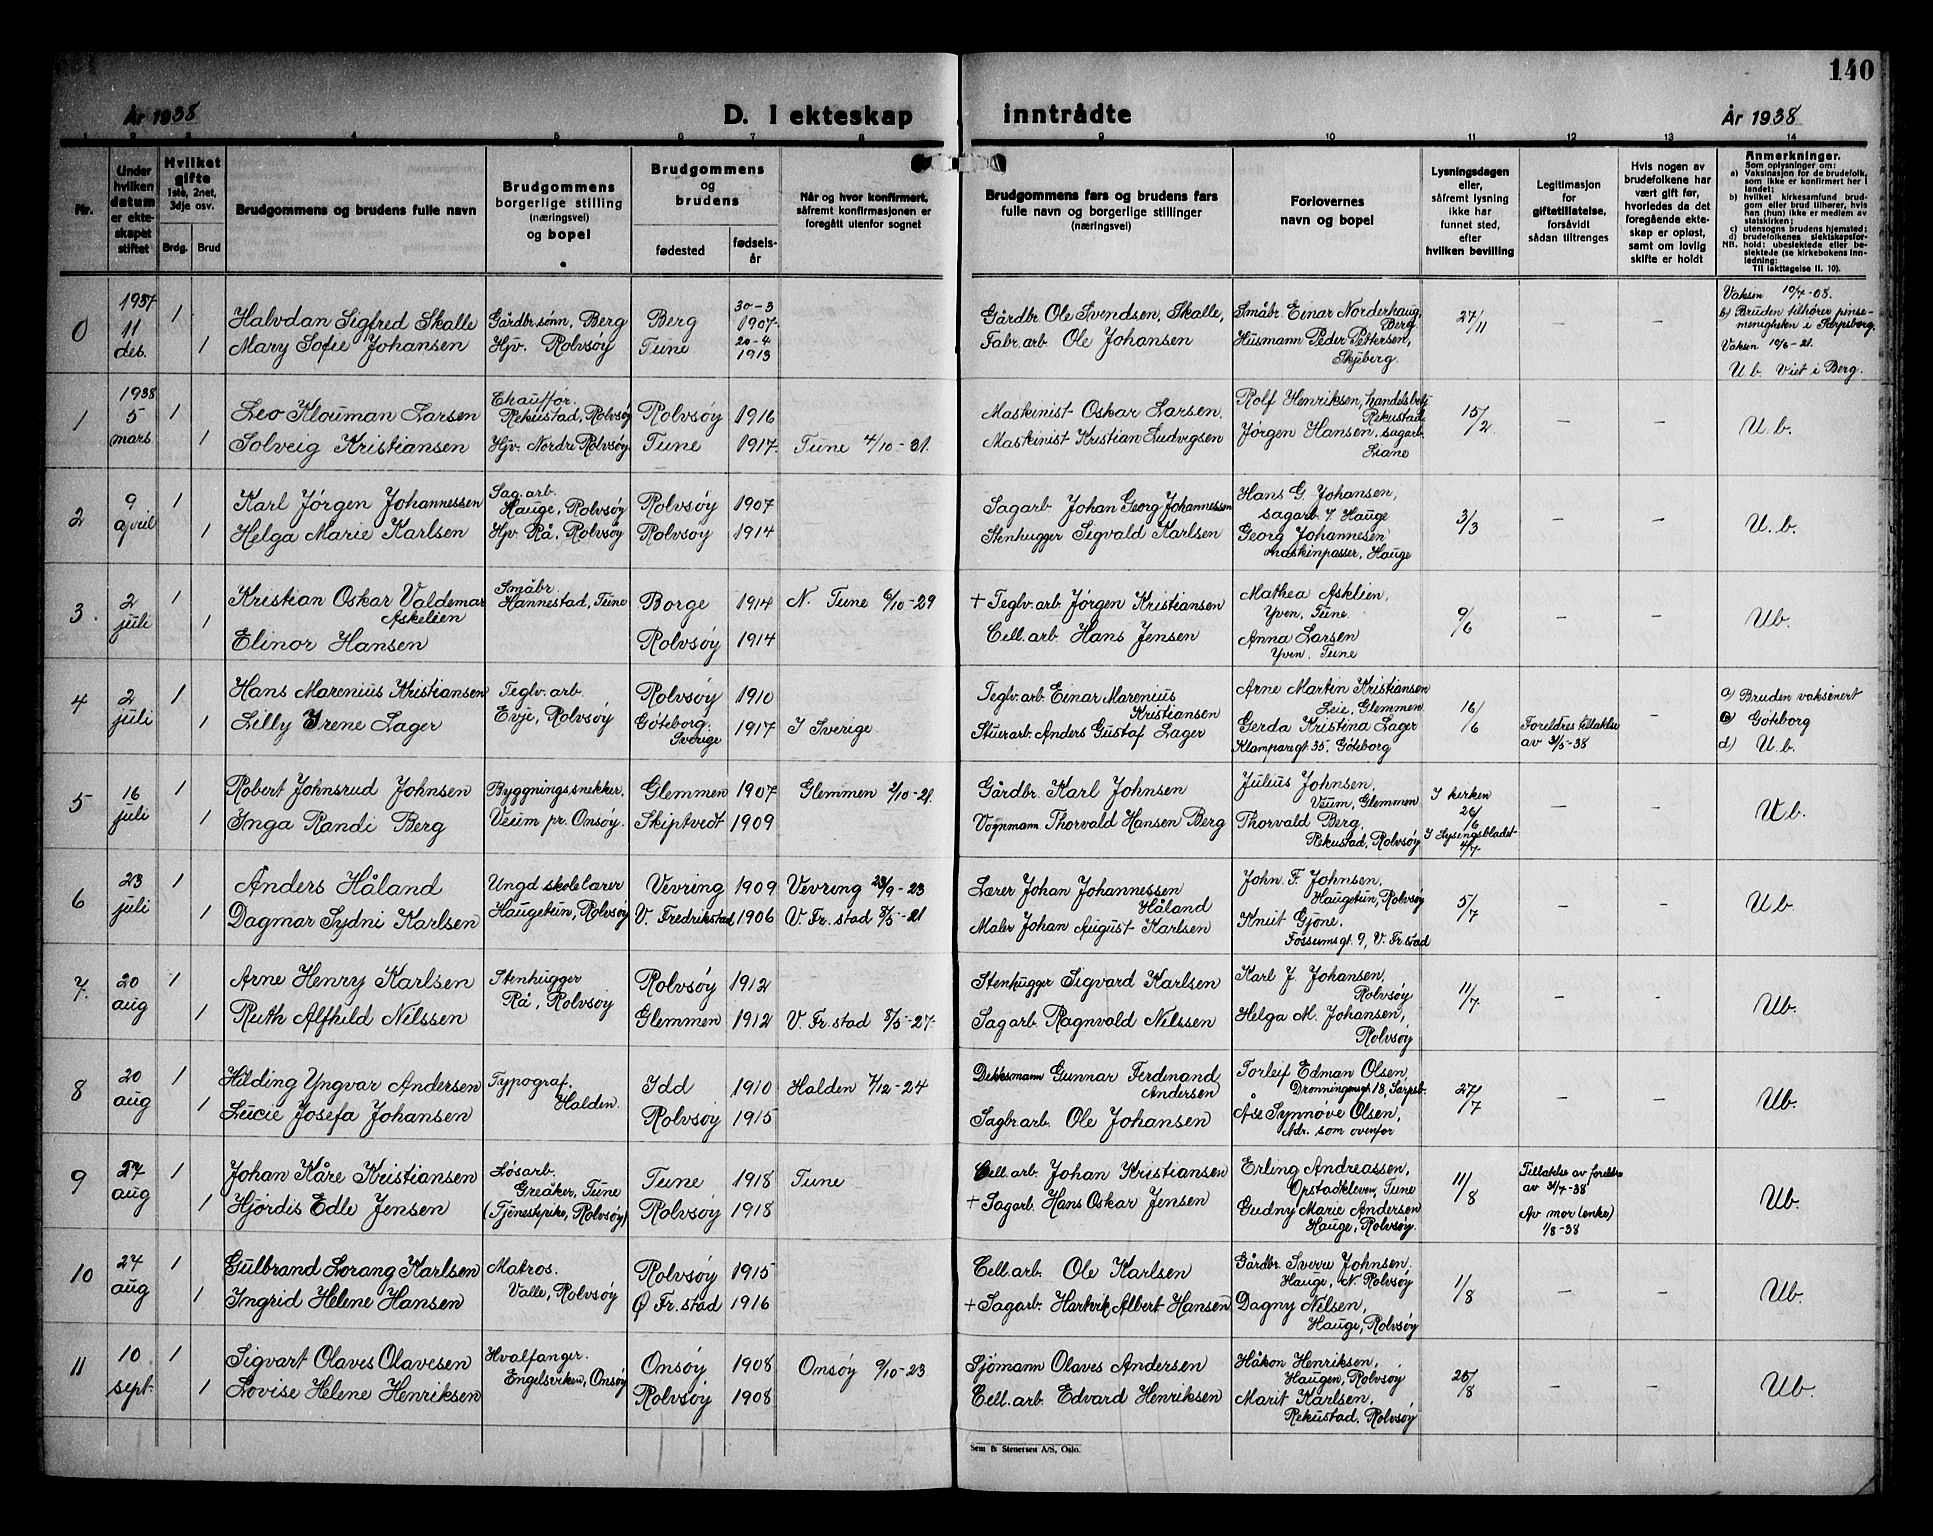 140
År 1938
D. I ekteskap
inntrådte
År 1938
1 2 3 4 5 6 7 8 9 10 11 12 13 14
Nr.
Under
hvilken
datum
er ekte-
skapet
stiftet
Hvilket
gifte
1ste, 2net,
3dje osv.
Brdg. Brud
Brudgommens og brudens fulle navn
Brudgommens
borgerlige stilling
(næringsvei)
og bopel
Brudgommens
og
brudens
fødested
fødsels-
år
Når og hvor konfirmert,
såfremt konfirmasjonen er
foregått utenfor sognet
Brudgommens fars og brudens fars
fulle navn og borgerlige stillinger
(næringsvei)
Forlovernes
navn og bopel
Lysningsdagen
eller,
såfremt lysning
ikke har
funnet sted,
efter
hvilken bevilling
Legitimasjon
for
giftetillatelse,
forsåvidt
sådan tiltrenges
Hvis nogen av
brudefolkene har
vært gift før,
hvorledes da det
foregående ekte-
skap er opløst,
samt om lovlig
skifte er holdt
Anmerkninger.
Som oplysninger om:
a) Vaksinasjon for de brudefolk,
som ikke er konfirmert her i
landet;
b) hvilket kirkesamfund brud-
gom eller brud tilhører, hvis
han (hun) ikke er medlem av
statskirken;
c) utensogns brudens hjemsted;
d) brudefolkenes slektskapsfor-
NB. hold: ubeslektede eller be-
slektede (se kirkebokens inn-
ledning:
Til iakttagelse II. 10).
0
1937
11
des.
1
1
Halvdan Sigfred Skalle
Mary Sofie Johansen
Gårdbr. sønn, Berg
Hjv. Rolvsøy
Berg
Tune
30-3
1907
20-4
1913
Gårdbr. Ole Svendsen, Skalle,
Fabr. arb. Ole Johansen
Småbr. Einar Norderhaug,
Berg
Husmann Peder Pettersen,
Skjeberg.
27/11
–
–
Vaksin 10/7-08.
b) Bruden tilhører pinse-
menigheten i Sarpsborg.
Vaksin 10/6-21.
U. b. Viet i Berg.
1
1938
5
mars
1
1
Leo Klouman Larsen
Solveig Kristiansen
Chauffør.
Rekustad, Rolvsøy
Hjv. Nordre Rolvsøy.
Rolvsøy
Tune
1916
1917.
Tune 4/10-31.
Maskinist Oskar Larsen.
Maskinist Kristian Ludvigsen
Rolf Henriksen, handelsbetj.
Rekustad
Jørgen Hansen, sagarb.
Liane
15/2
–
–
U. b.
2
9
april
1
1
Karl Jörgen Johannessen
Helga Marie Karlsen
Sag.arb.
Hauge, Rolvsøy
Hjv. Rå, Rolvsøy
Rolvsøy
Rolvsøy
1907
1914
Sagarb Johan Georg Johannessen
Stenhugger Sigvald Karlsen
Hans G. Johansen,
sagarb. Hauge
Georg Johannesen
maskinpasser, Hauge
3/3
–
–
U. b.
3.
2
juli
1
1
Kristian Oskar Valdemar
Askelien
Elinor Hansen
Småbr.
Hannestad, Tune
Borge
Rolvsøy
1914
1914
N. Tune 6/10-29
+ Teglv. arb. Jörgen Kristiansen
Cell. arb. Hans Jensen
Mathea Asklien,
Yven, Tune
Anna Larsen
Yven, Tune
9/6
–
–
Ub.
4
2
juli
1
1
Hans Marenius Kristiansen
Lilly Irene Lager
Teglv. arb.
Evje, Rolvsøy
Rolvsøy
Göteborg.
Sverige
1910
1917
I Sverige
Teglv. arb. Einar Marenius
Kristiansen
Stuerarb. Anders Gustaf Lager
Arne Martin Kristiansen
Leie, Glemmen
Gerda Kristina Lager
Klamparegt 35, Göteborg
16/6
Foreldres tillatelse
av 3/5-38
–
a) Bruden vaksinert
Göteborg
d) U. b.
5
16
juli
1
1
Robert Johnsrud Johnsen
Inga Randi Berg
Byggningssnekker.
Veum pr. Onsøy.
Glemmen
Skiptvedt
1907
1909
Glemmen 2/10-21.
Gårdbr. Karl Johnsen
Vognmann Thorvald Hansen Berg
Julius Johnsen,
Veum, Glemmen
Thorvald Berg,
Rekustad, Rolvsøy
I kirken
26/6
I Lysingsbladet
4/7
–
–
U b.
6
23
juli
1
1
Anders Håland
Dagmar Sydni Karlsen
Ungd skolelærer
Haugetun, Rolvsøy
Vevring
V. Fredrikstad
1909
1906
Vevring 23/9-23
V. Fr. stad 8/5-21
Lærer Johan Johannessen
Håland
Maler Johan August Karlsen
John. F. Johnsen.
Haugetun, Rolvsøy
Knut Gjöne.
Fossumsgt 9, V. Fr. stad
5/7
–
–
U b.
7.
20
aug
1
1
Arne Henry Karlsen
Ruth Alfhild Nilssen
Stenhugger
Rå, Rolvsøy
Rolvsøy
Glemmen
1912
1912
V. Fr. stad 8/5-27.
Stenhugger Sigvard Karlsen
Sagarb. Ragnvald Nilssen
Karl J. Johansen,
Rolvsøy
Helga M. Johansen,
Rolvsøy
11/7
–
–
Ub.
8
20
aug
1
1
Hilding Yngvar Andersen
Lucie Josefa Johansen
Typograf.
Halden.
Idd
Rolvsøy
1910
1915
Halden 7/12-24
Dekksmann Gunnar Ferdinand
Andersen
Sagbr.arb. Ole Johansen
Torleif Edman Olsen,
Dronningensgt 18, Sarpsb.
Åse Synnöve Olsen,
Adr. som ovenfor
27/7
–
–
Ub.
9
27
aug
1
1
Johan Kåre Kristiansen
Hjördis Edle Jensen
Løsarb.
Greåker, Tune
(Tjenestepike, Rolvsøy)
Tune
Rolvsøy
1918
1918
Tune
Cell. arb. Johan Kristiansen
+ Sagarb. Hans Oskar Jensen
Erling Andreassen,
Opstadkleven, Tune
Gudny Marie Andersen
Hauge, Rolvsøy.
11/8
Tillatelse av foreldre
av 3/7-38
Av mor (enke)
1/8-38
Ub.
10
24
aug
1
1
Gulbrand Lorang Karlsen
Ingrid Helene Hansen
Matros.
Valle, Rolvsøy
Rolvsøy
Ø Fr. stad
1915
1916
Cell. arb. Ole Karlsen
+ Sagarb. Hartvik Albert Hansen
Gårdbr. Sverre Johnsen.
Hauge, N. Rolvsøy
Dagny Nilsen,
Hauge, Rolvsøy
1/8
–
–
Ub.
11
10
sept.
1
1
Sigvart Olaves Olavesen
Lovise Helene Henriksen
Hvalfanger.
Engelsviken, Onsøy
Onsøy
Rolvsøy
1908
1908
Onsøy 9/10-23
Sjömann Olaves Andersen
Cell. arb. Edvard Henriksen
Håkon Henriksen,
Haugen, Rolvsøy
Marit Karlsen,
Rekustad, Rolvsøy
25/8
–
–
Ub.
Sem & Stenersen A/S, Oslo.